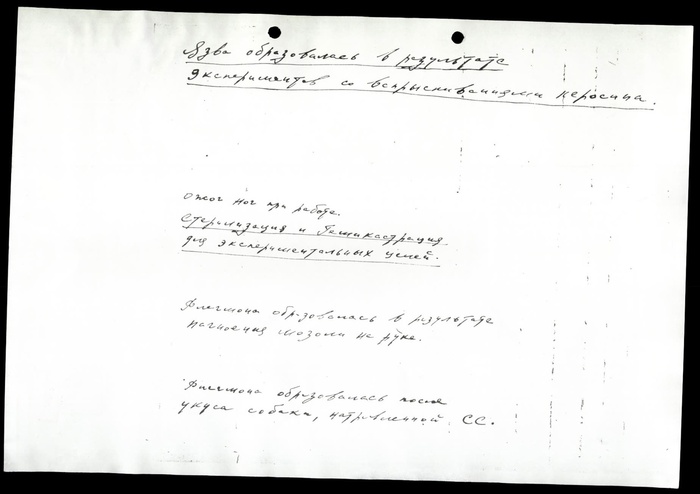 Язва образовалась в результате
экспериментов со вспрыскиваниями керосина.
Ожог ног при работе.
Стерилизация и Гемикастрация
для экспериментальных целей.
Флегмона образовалась в результате
нагноения мозоли на руке.
Флегмона образовалась после
укуса собаки, натравленной СС.